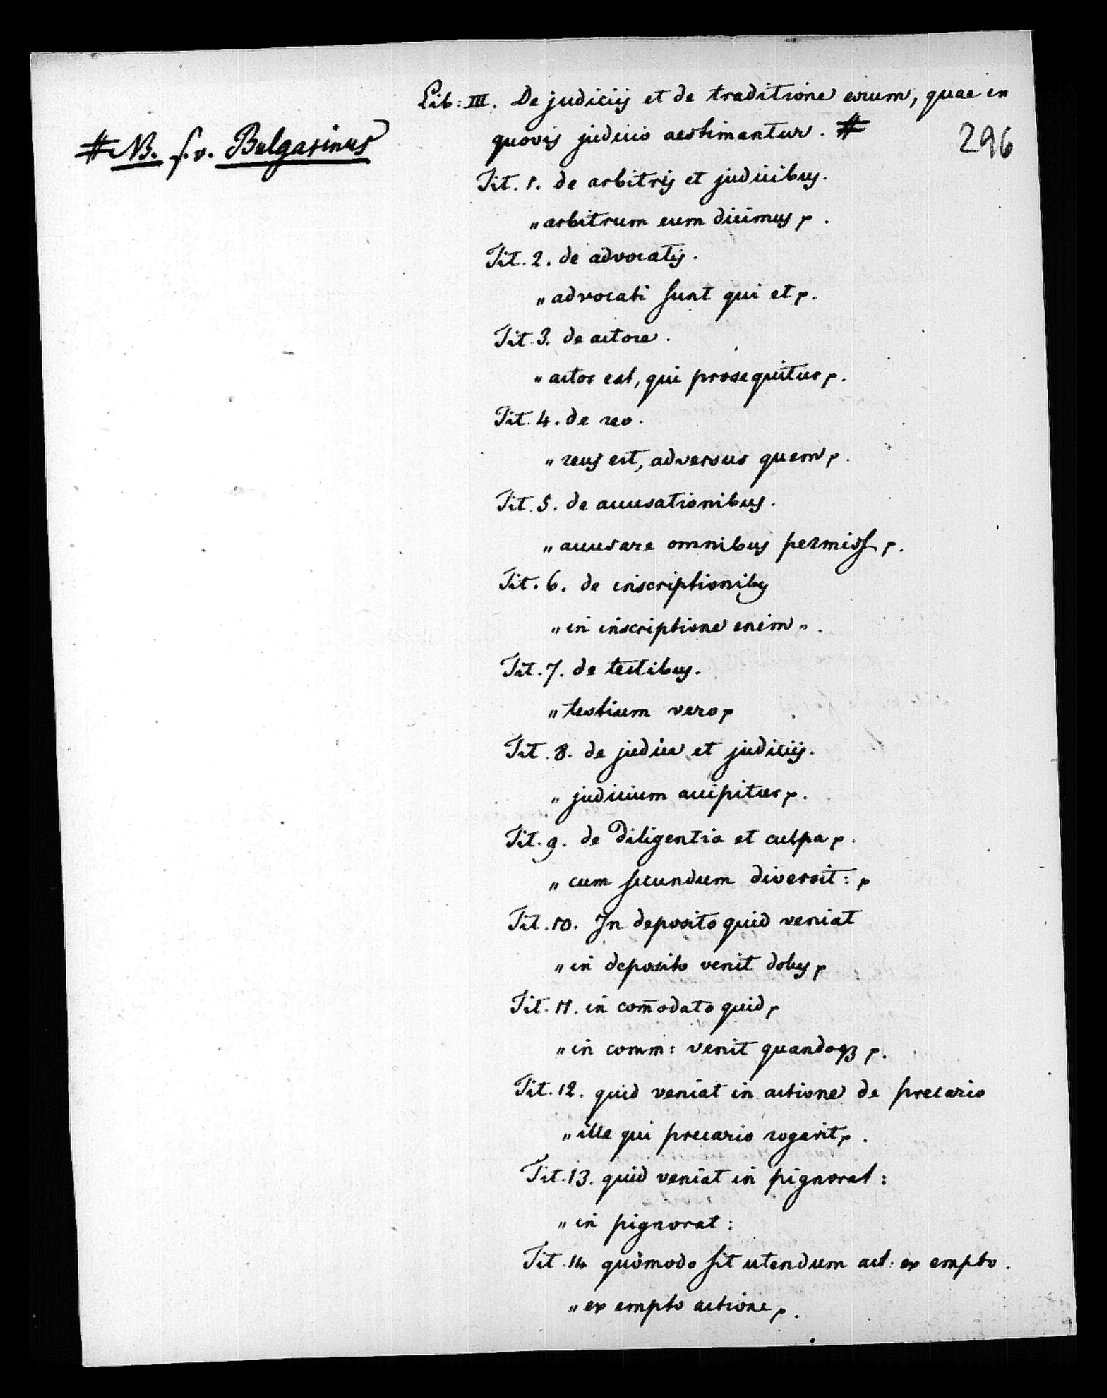 Lib: III. De judiciis et de traditione eorum, quae in
quovis judicio aestimantur. #
296
# NB. s.v. Bulgarinus
Tit. 1. de arbitris et judicibus.
„arbitrum eum dicimus
Tit. 2. de advocatis.
„advocati sunt qui et
Tit. 3. de actore.
„actor est, qui prosequitur
Tit. 4. de reo.
„reus est, adversus quem
Tit. 5. de accusationibus.
„accusare omnibus permiss
Tit. 6. de inscriptionib9
„in inscriptione enim„.
Tit. 7. de testibus.
„testium vero
Tit. 8. de judice et judiciis.
„judicium accipitur
Tit. 9. de diligentia et culpa
„cum secundum diversit:
Tit. 10. In deposito quid veniat
„in deposito venit dolus
Tit. 11. in com̄odato quid
„in comm: venit quandoq3
Tit. 12. quid veniat in actione de precario
„ille qui precario rogavit
Tit. 13. quid veniat in pignorat:
„in pignorat:
Tit. 14 quomodo sit utendum act: ex empto.
„ex empto actione